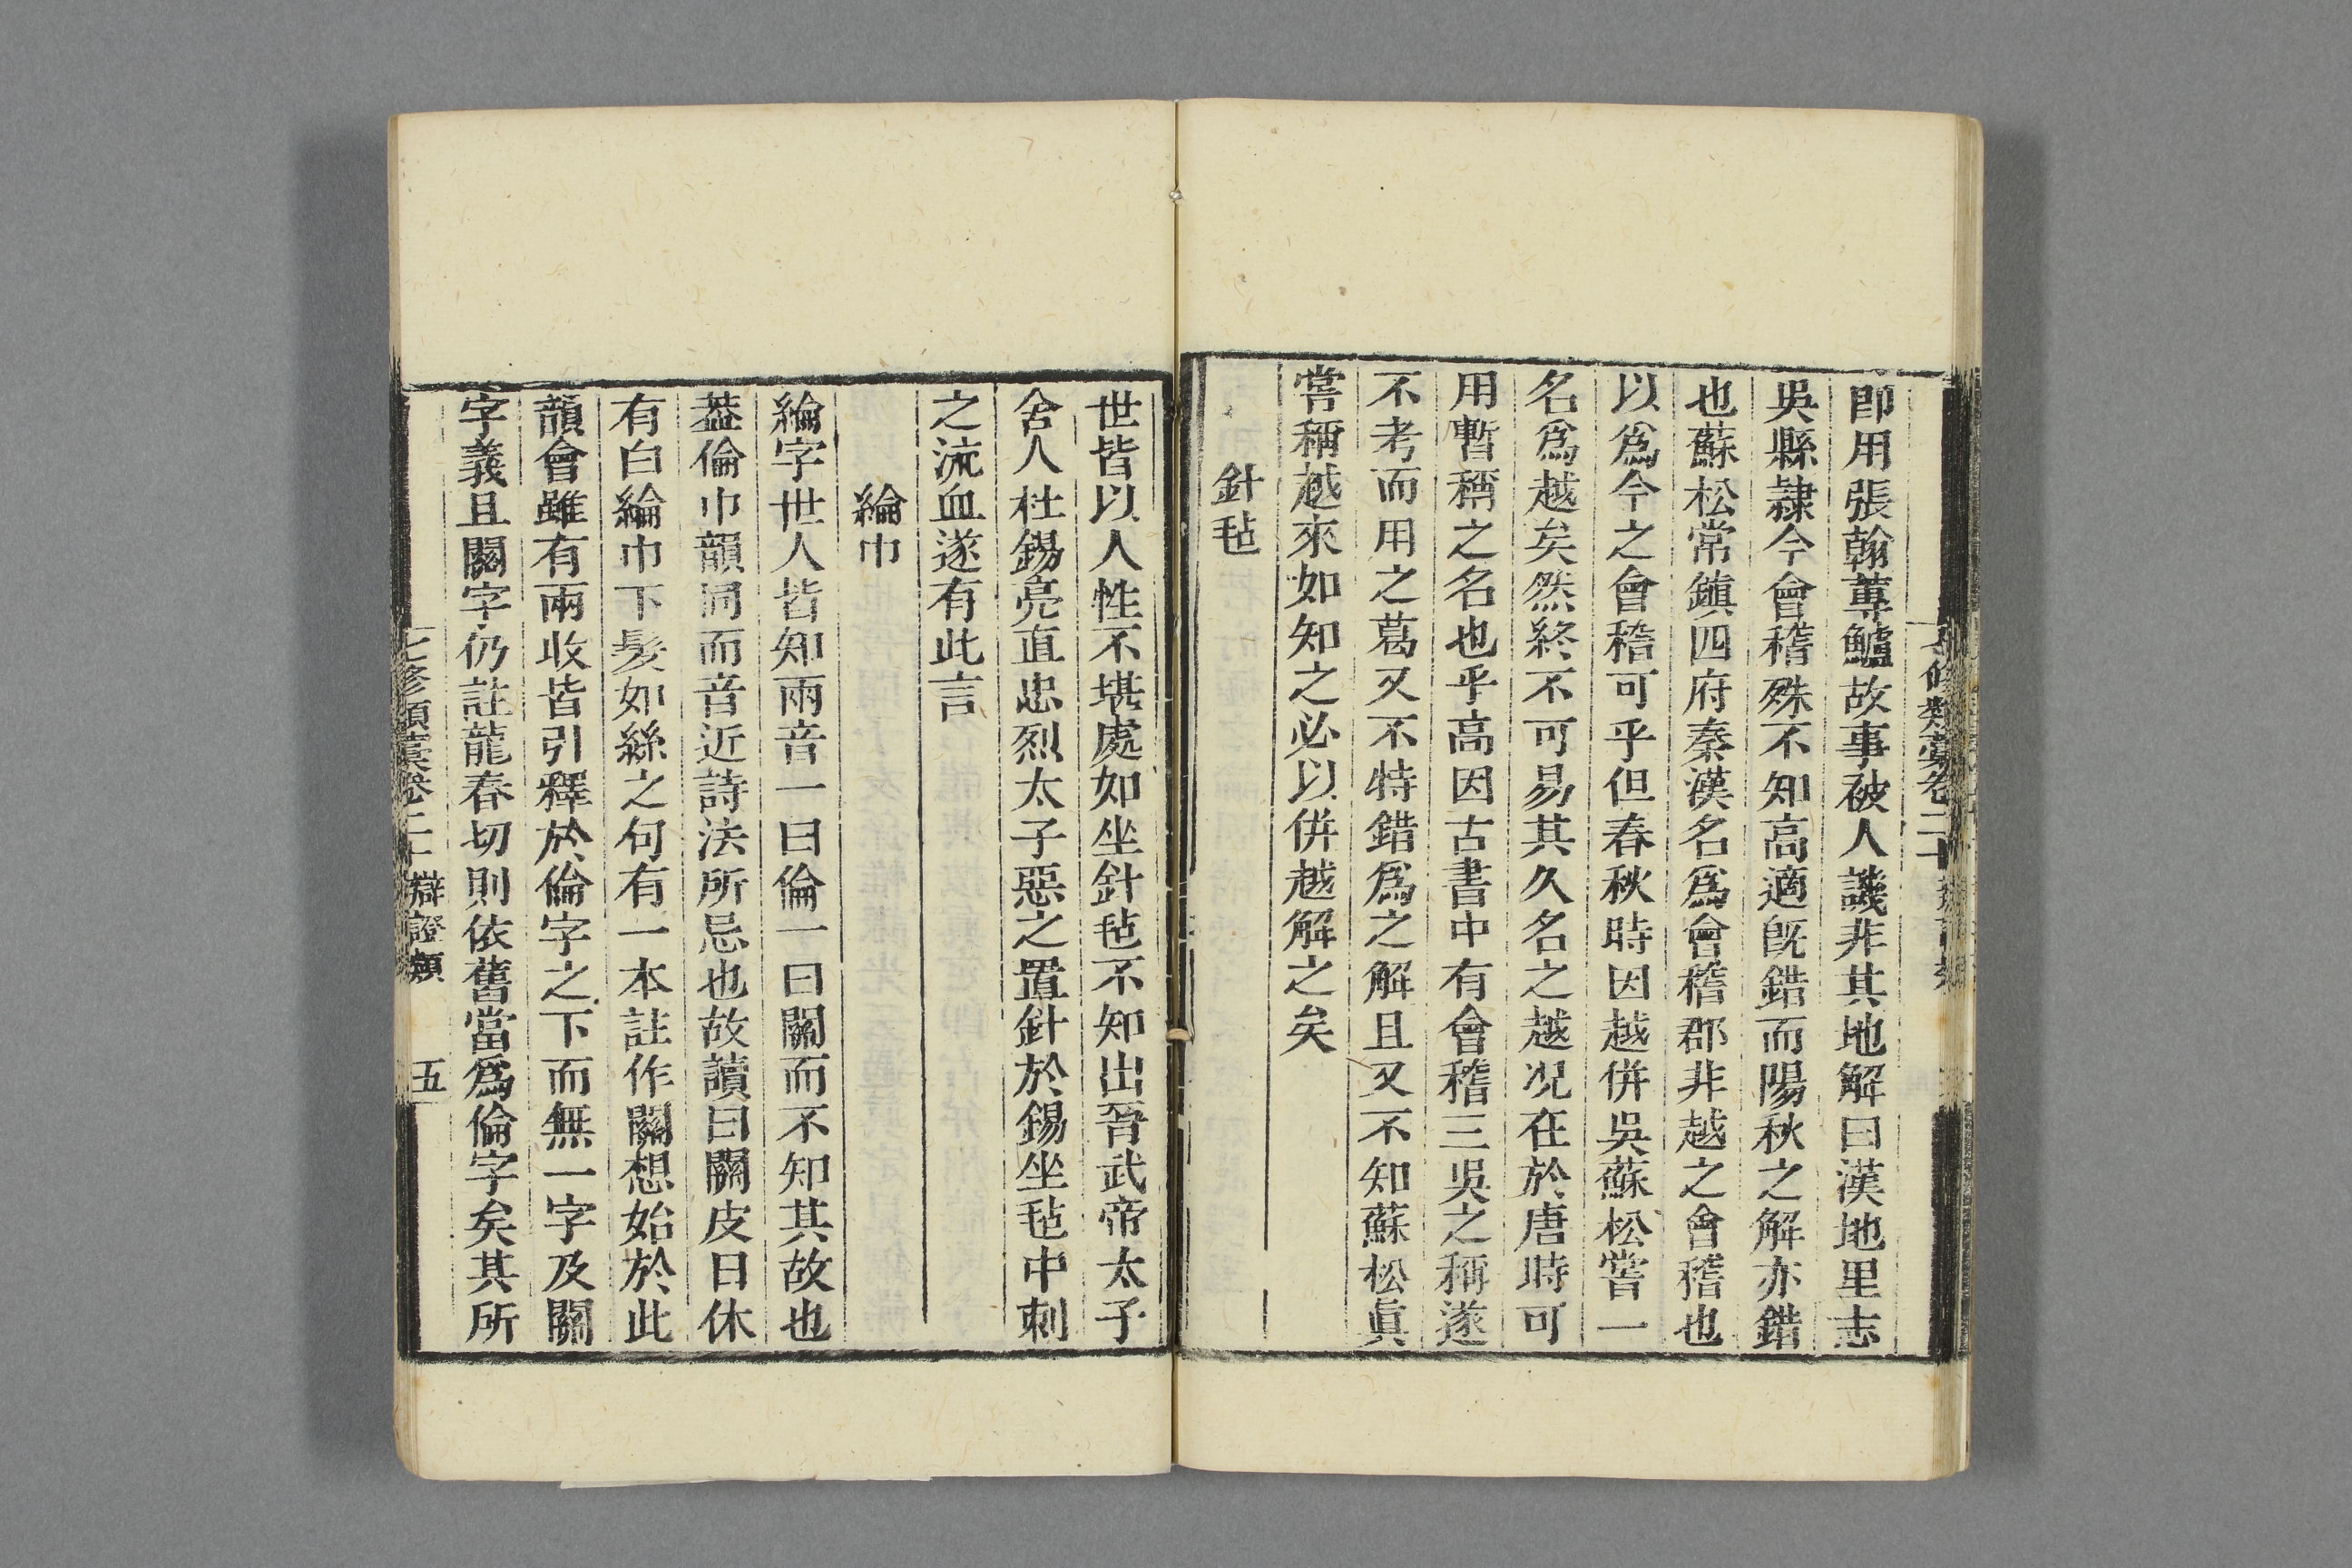 七修類藁卷二十
即用張翰蓴鱸故事被人譏非其地解曰漢地里志
吳縣隷今會稽殊不知高適旣錯而陽秋之解亦錯
也蘇松常鎮四府秦漢名爲會稽郡非越之會稽也
以爲今之會稽可乎但春秋時因越併吳蘇松嘗一
名爲越矣然終不可易其久名之越况在於唐時可
用暫稱之名也乎高因古書中有會稽三吳之稱遂
不考而用之葛又不特錯爲之解且又不知蘇松眞
嘗稱越來如知之必以併越解之矣
針毡
世皆以人性不堪處如坐針毡不知出晉武帝太子
舍人杜錫亮直忠烈太子惡之置針於錫坐毡中刺
之流血遂有此言
綸巾
綸字世人皆知兩音一曰倫一曰關而不知其故也
葢倫巾韻同而音近詩法所忌也故讀曰關皮日休
有白綸巾下髮如絲之句有一本註作關想始於此
韻會雖有兩收皆引釋於倫字之下而無一字及關
字義且關字仍註龍春切則依舊當爲倫字矣其所
七修類藁卷二十 辯證類 五